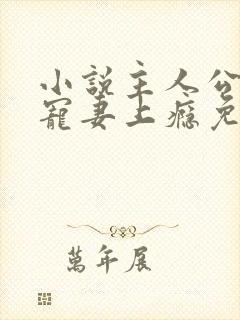 小說主人公
寵妻上癮免
萬年展